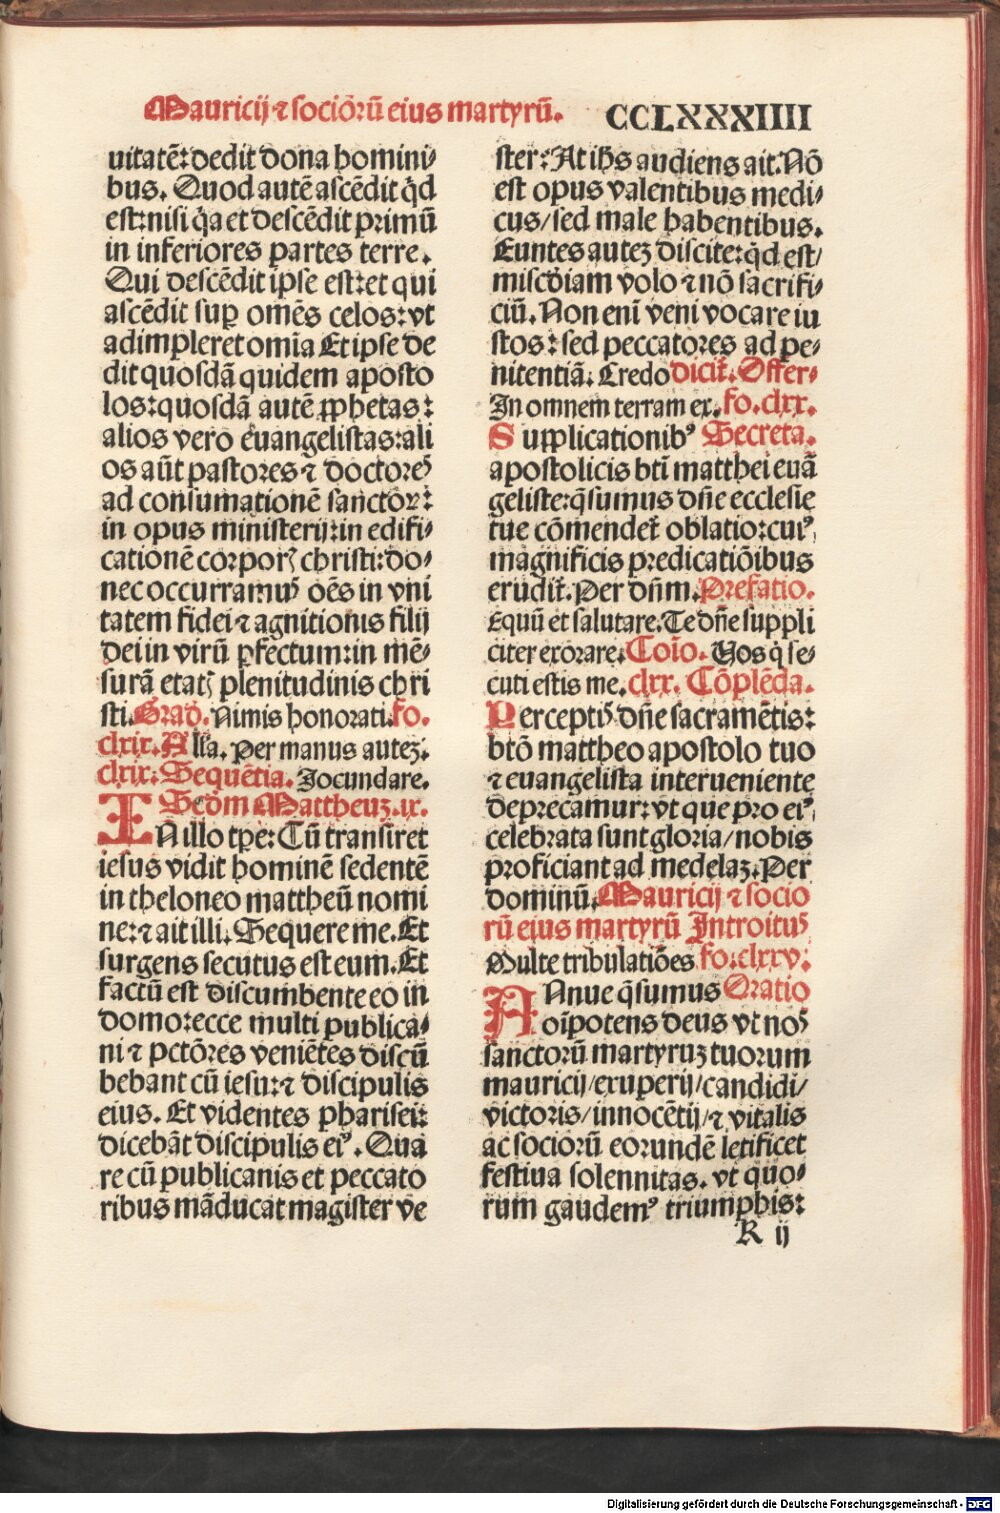 Mauricij ⁊ socioꝛū eius martyrū. CCLXXXIIII
uitatē: dedit dona homini⸗
bus. Quod autē ascēdit q̇d
est: nisi q̇a et descēdit primū
in inferiores partes terre.
Qui descēdit ipse est: et qui
ascēdit suꝑ omēs celos: vt
adimpleret omīa Et ipse de
dit quosdā quidem aposto
los: quosdā autē ꝓphetas:
alios vero euangelistas: ali
os aūt pastores ⁊ doctoreꝭ
ad consumationē sanctoꝝ:
in opus ministerij: in edifi⸗
cationē corporꝭ christi: do⸗
nec occurramꝰ oēs in vni
tatem fidei ⁊ agnitionis filij
dei in virū ꝑfectum: in mē⸗
surā etatꝭ plenitudinis chri
sti. Grad. Nimis honorati. fo.
clxix. Alla. Per manus autez.
clxix: Sequētia. Jocundare.
Scḋm Mattheuz. ix.
IN illo tꝑe: Cū transiret
iesus vidit hominē sedentē
in theloneo mattheū nomi
ne: ⁊ ait illi. Sequere me. Et
surgens secutus est eum. Et
factū est discumbente eo in
domo: ecce multi publica⸗
ni ⁊ pctōres veniētes discū
bebant cū iesu: ⁊ discipulis
eius. Et videntes pharisei:
dicebāt discipulis eiꝰ. Qua
re cū publicanis et peccato
ribus māducat magister ve
ster: At ihs audiens ait. Nō
est opus valentibus medi⸗
cus/ sed male habentibus.
Euntes autez discite: q̇d est/
miscḋiam volo ⁊ nō sacrifi⸗
ciū. Non enī veni vocare iu
stos: sed peccatores ad pe⸗
nitentiā. Credo dicit̄. Offer⸗
In omnem terram ex. fo. clxx.
Supplicationibꝰ Secreta.
apostolicis bt̄i matthei euā
geliste: q̄sumus dn̄e ecclesie
tue cōmendet̄ oblatio: cuiꝰ
magnificis predicatiōibus
erudit̄. Per dn̄m. Prefatio.
Equū et salutare. Te dn̄e suppli
citer exorare. Coīo. Uos q̄ se⸗
cuti estis me. clxx. Cōplēda.
Perceptꝭ dn̄e sacramētis:
btō mattheo apostolo tuo
⁊ euangelista interueniente
deprecamur: vt que pro eiꝰ
celebrata sunt gloria/ nobis
proficiant ad medelaz. Per
dominū. Mauricij ⁊ socio
rū eius martyrū Introitus
Multe tribulatiōes fo. clxxv:
Annue q̄sumus Oratio
oīpotens deus vt nos
sanctorū martyruz tuorum
mauricij/ exuperij/ candidi/
victoris/ innocētij/ ⁊ vitalis
ac sociorū eorundē letificet
festiua solennitas. vt quo⸗
rum gaudemꝰ triumphis:
K ij
Digitalisierung gefördert durch die Deutsche Forschungsgemeinschaft - DFG